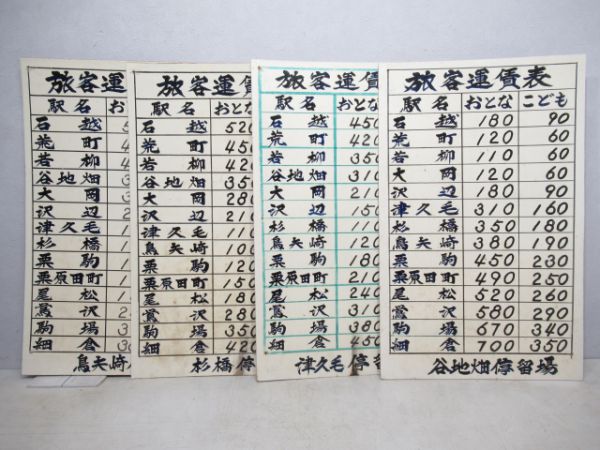 旅客運
駅名 お
石越
荒町
若柳
谷地畑
大岡
沢辺
津久毛
杉橋
栗駒
栗原田町
尾松
鶯沢
駒場
細倉
鳥矢崎
旅客運
駅名 おと
石越 520
荒町 450
若柳 420
谷地畑 350
大岡 280
沢辺 210
津久毛 110
鳥矢崎 100
栗駒 120
栗原田町 150
尾松 180
鶯沢 280
駒場 350
細倉 420
杉橋停
旅客運
駅名 おとな
石越 450
荒町 420
若柳 350
谷地畑 310
大岡 210
沢辺 150
杉橋 110
鳥矢崎 120
栗駒 180
栗原田町 210
尾松 240
鶯沢 310
駒場 380
細倉 450
津久毛停留
旅客運賃表
駅名 おとな こども
石越 180 90
荒町 120 60
若柳 110 60
大岡 120 60
沢辺 180 90
津久毛 310 160
杉橋 350 180
鳥矢崎 380 190
栗駒 450 230
栗原田町 490 250
尾松 520 260
鶯沢 580 290
駒場 670 340
細倉 700 350
谷地畑停留場